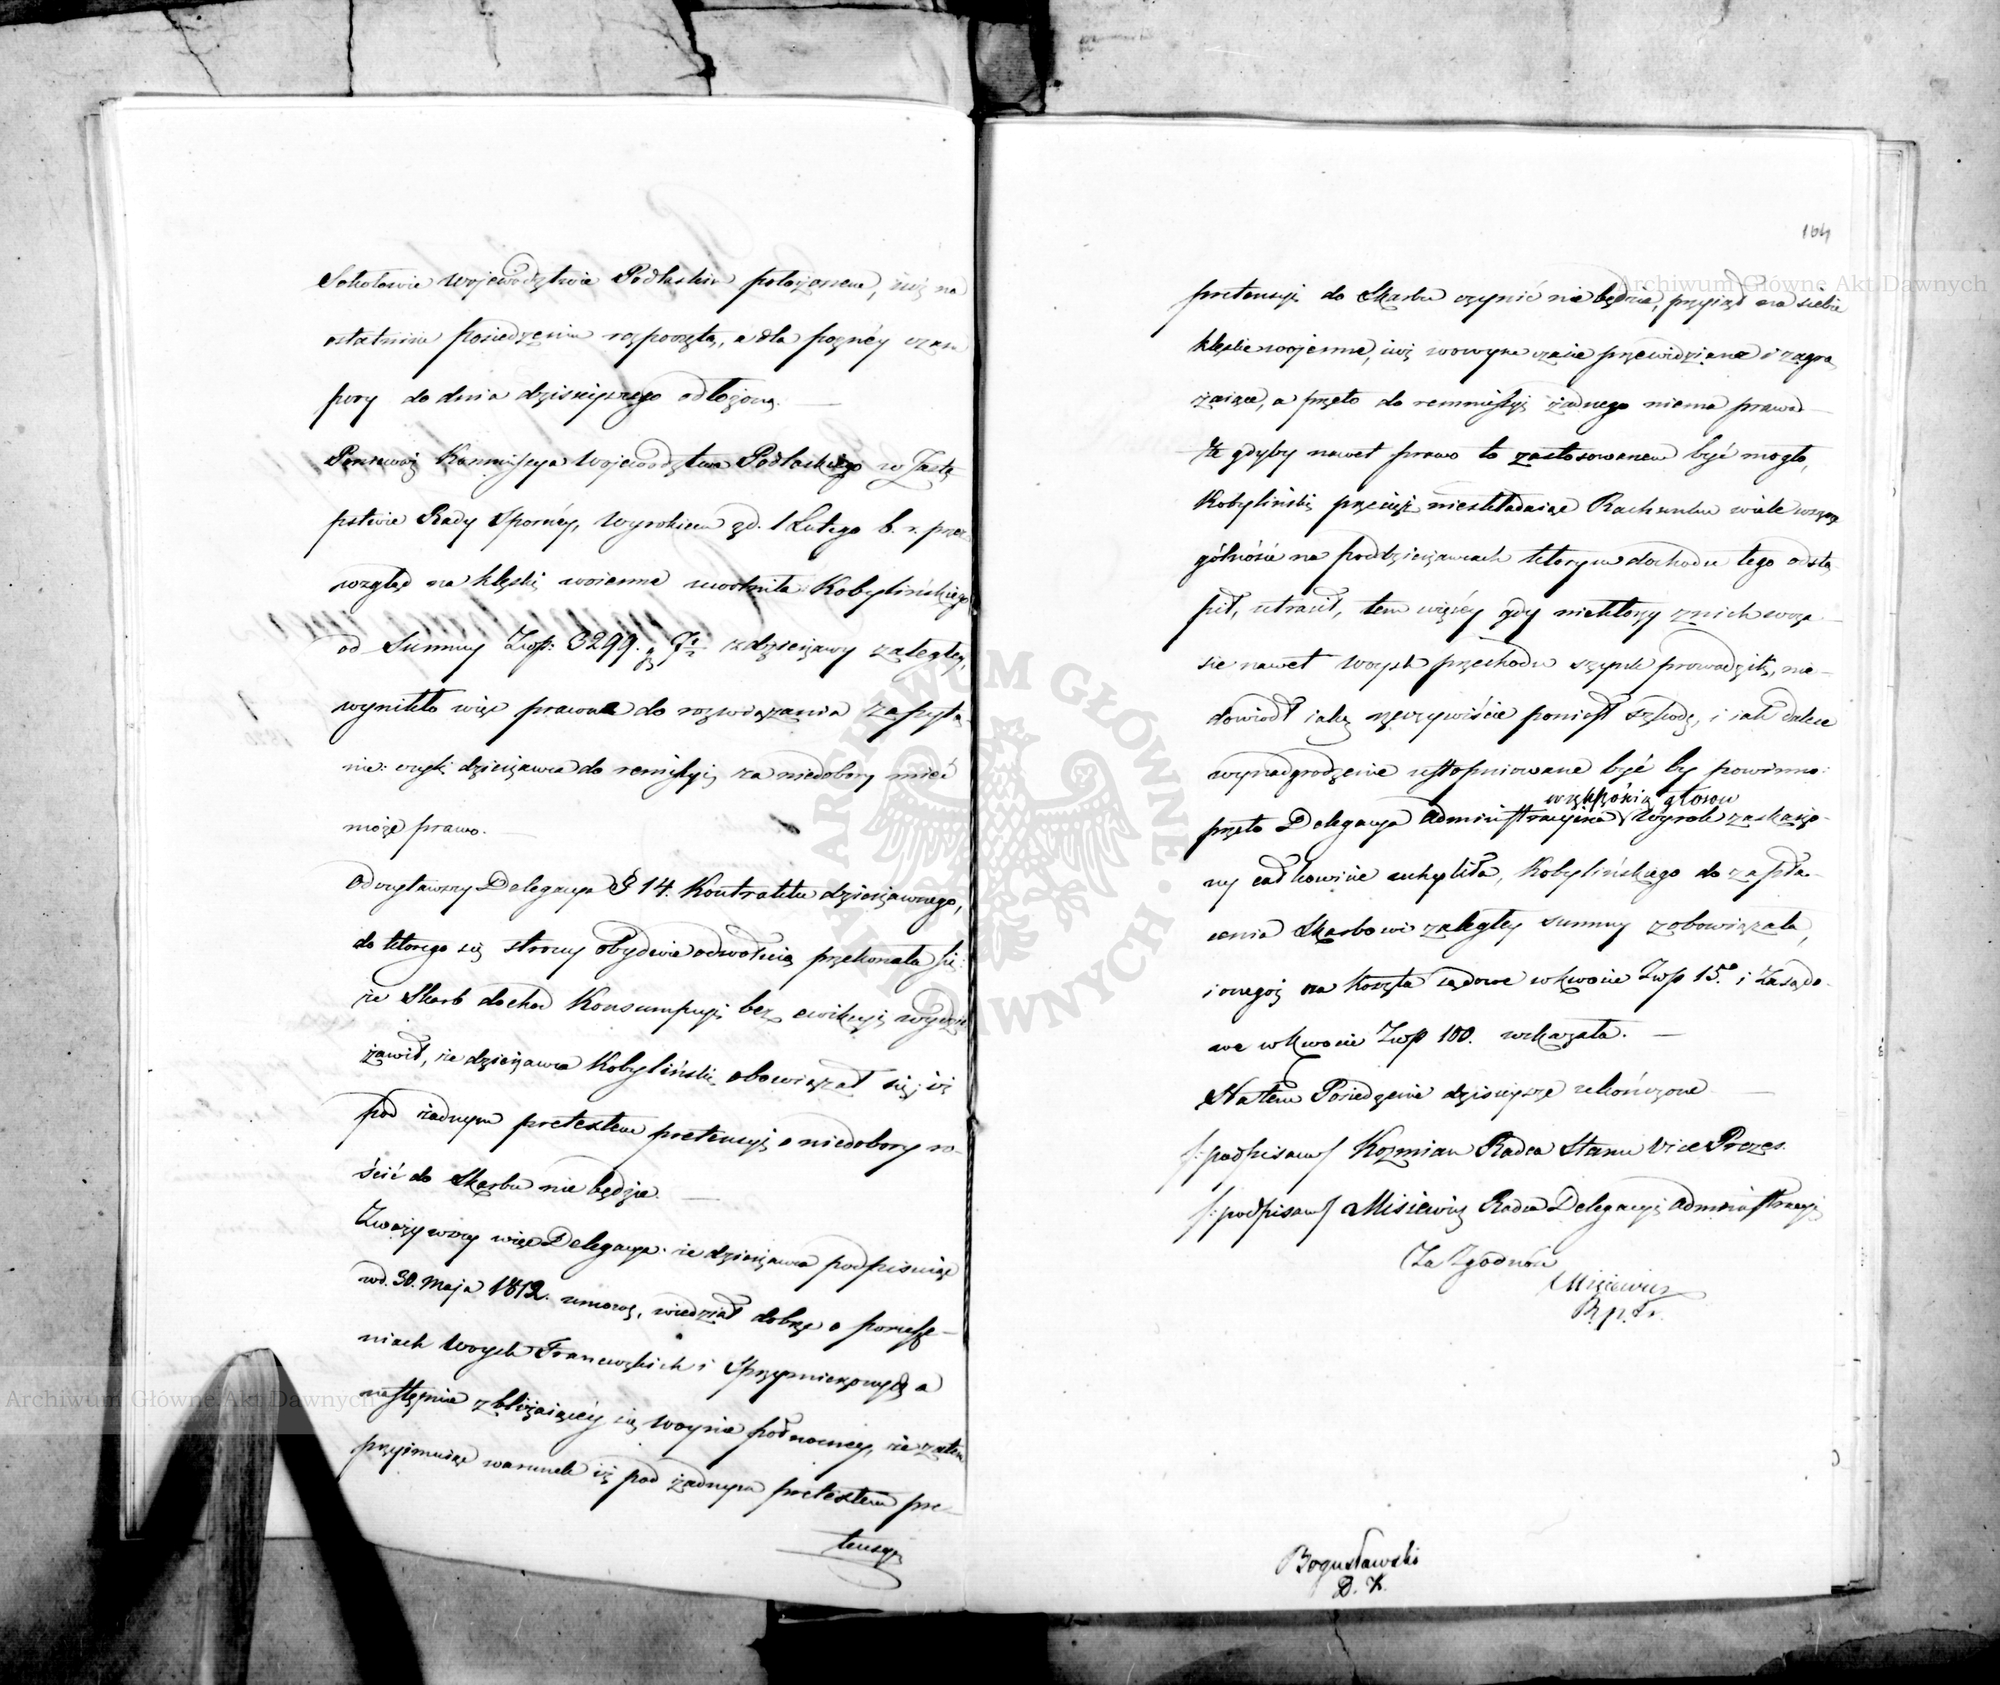 Sokołowie Województwie Podlaskim położonem, iuż na
ostatniem posiedzeniu rozpoczęta, a dla poźnéy czasu
pory do dnia dzisieyszego odłożoną. —
Ponieważ Kommissya Województwa Podlaskiego w Zastę-
pstwie Rady Sporney, Wyrokiem zd. 1 Lutego b. r. przez
wzgląd na klęski woienne uwolniła Kobylińskiego
od Summy Zwp: 3299. gr 7 z dzierżawy zaległey,
wynikło więc prawne do rozwiązania zapyta-
nie: czyli dzierżawca do remissyi za niedobory mieć
może prawo. —
Odczytawszy Delegacya § 14. Kontraktu dzierżawnego,
do którego się strony obydwie odwołuią, przekonała się:
że Skarb dochod Konsumpcyi bez ewikcyi wydzier
żawił, że dzierżawca Kobyliński obowiązał się, iż
pod żadnym pretextem pretensyi o niedobory ro-
ścić do Skarbu nie będzie. —
Zważywszy więc Delegacya: że dzierżawca podpisuiąc
wd. 30. Maja 1812. umowę, wiedział dobrze o porusze-
niach Woysk Francuzkich i Sprzymierzonych a
następnie zbliżaiącéy się woynie północney, że zatem
przyimuiąc warunek iż pod żadnym pretextem pre-
tensyi
104
pretensyi do Skarbu czynić nie będzie, przyiął na siebie
klęskie woienne, iuż wowym czasie przewidziane i zagra
żaiące, a przeto do remmissyi żadnego niema prawa —
Że gdyby nawet prawo to zastosowanem być mogło,
Kobyliński przecież nieskładaiąc Rachunku wiele wszcze
gólności na poddzierżawcach którym dochodu tego odstą-
pił, utracił, tem więcéy gdy niektórzy znich wcza-
sie nawet Woysk przechodu szynk prowadzili, nie-
dowiodł iaką rzeczywiście poniosł szkodę, i iak dalece
wynadgrodzenie ustopniowane być by powinno:
większością głosow
przeto Delegacya Administracyina Wyrok zaskarżo-
ny całkowicie uchyliła, Kobylińskiego do zapła-
cenia Skarbowi zaległey summy zobowiązała,
i onegoż na koszta sądowe wkwocie Zwp 15. i Zasądo-
we wkwocie Zwp 100. wskazała. —
Natem Posiedzenie dzisieysze ukończone —
/: podpisano/ Kozmian Radca Stanu Vice Prezes.
/: podpisano/ Misiewicz Radca Delegacyi Administracyi
Za Zgodność
Misiewicz
Bogusławski
D. K.
Archiwum Główne Akt Dawnych
Archiwum Główne Akt Dawnych
ARCHIWUM GŁÓWNE AKT DAWNYCH